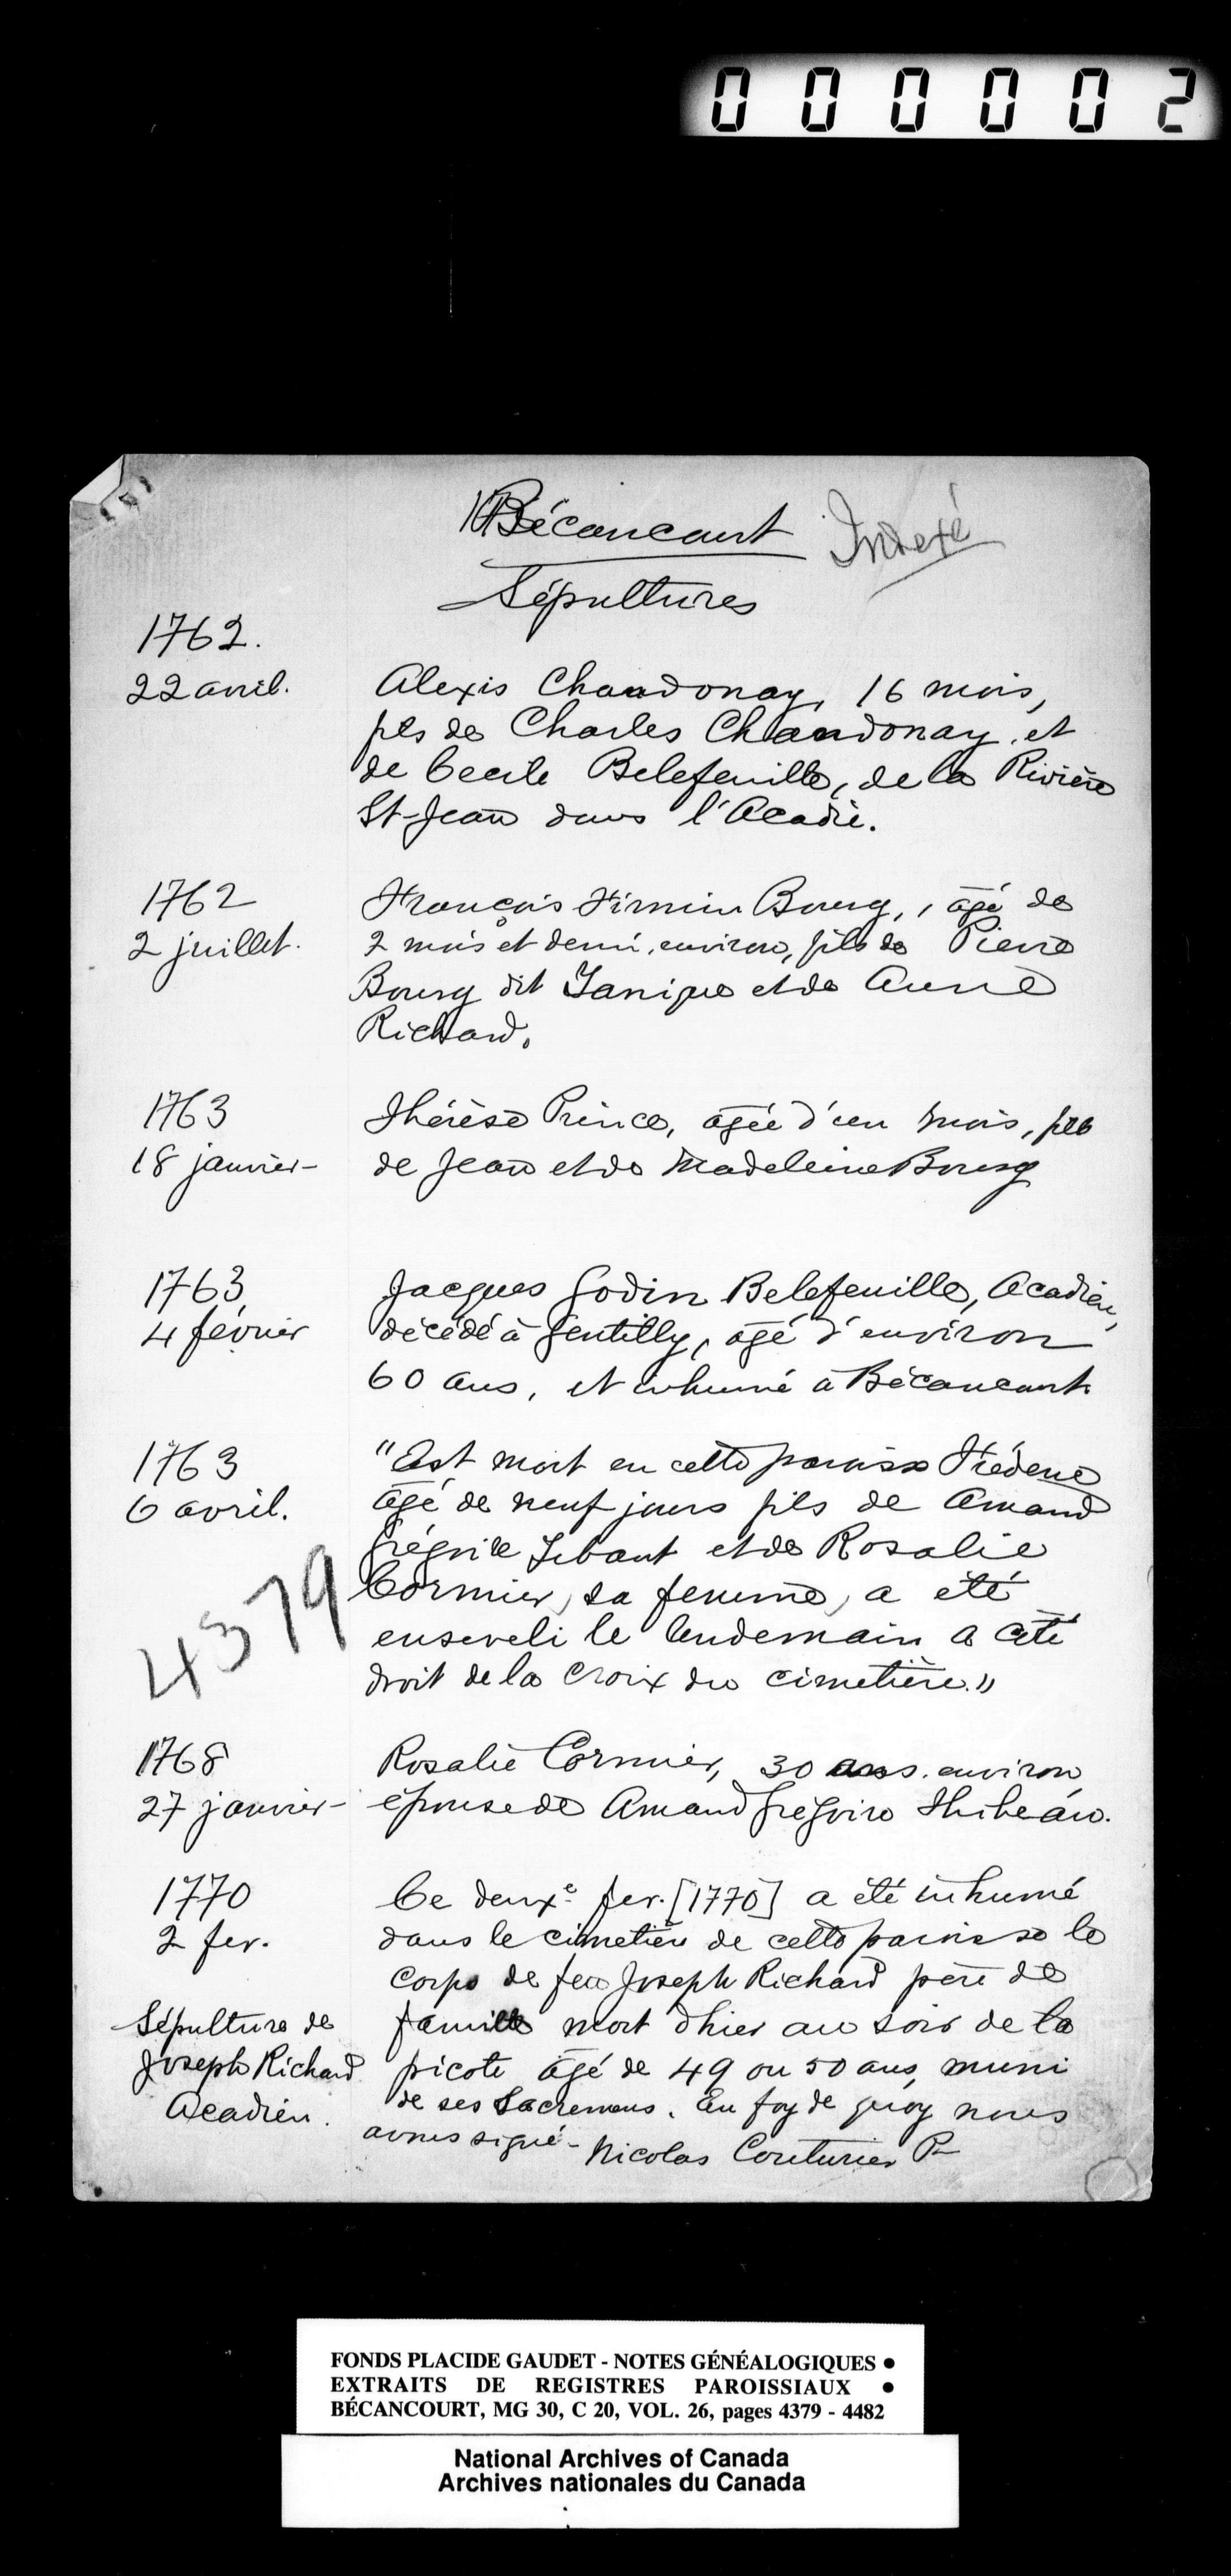 000002
Bécancourt Indexé
Sépultures
1762.
22 avril. Alexis Chandonay, 16 mois,
fils de Charles Chandonay, et
de Cecile Bellefeuille, de la Rivière
St-Jean dans l'Acadie.
1762 François Firmin Bourg, âgé de
2 juillet. 2 mois et demi environ, fils de Pierre
Bourg dit Canique et de Anne
Richard.
1763 Thérèse Prince, âgée d'un mois, fille
18 janvier- de Jean et de Madeleine Bourg
1763 Jacques Godin Belefeuille, Acadien,
4 février décédé à Gentilly, âgé d'environ
60 ans, et inhumé à Bécancourt.
1763 "Est mort en cette paroisse
6 avril. âgé de neuf jours fils de Amand
Grégoire Tibaut et de Rosalie
Cormier, sa femme, a été
enseveli le lendemain a côté
droit de la Croix du cimetière."
4379
1768 Rosalie Cormier, 30 ans environ
27 janvier- épouse de Amand Gregoire Thibeau.
1770 Ce deuxe fev. [1770] a été inhumé
2 fev. dans le cimetière de cette paroisse le
corps de feu Joseph Richard père de
Sépulture de famille mort d'hier au soir de la
Joseph Richard picote âgé de 49 ou 50 ans, muni
Acadien. de ses Sacremens. En foy de quoy nous
avons signé- Nicolas Couturier P
FONDS PLACIDE GAUDET - NOTES GÉNÉALOGIQUES •
EXTRAITS DE REGISTRES PAROISSIAUX •
BÉCANCOURT, MG 30, C 20, VOL. 26, pages 4379 - 4482
National Archives of Canada
Archives nationales du Canada